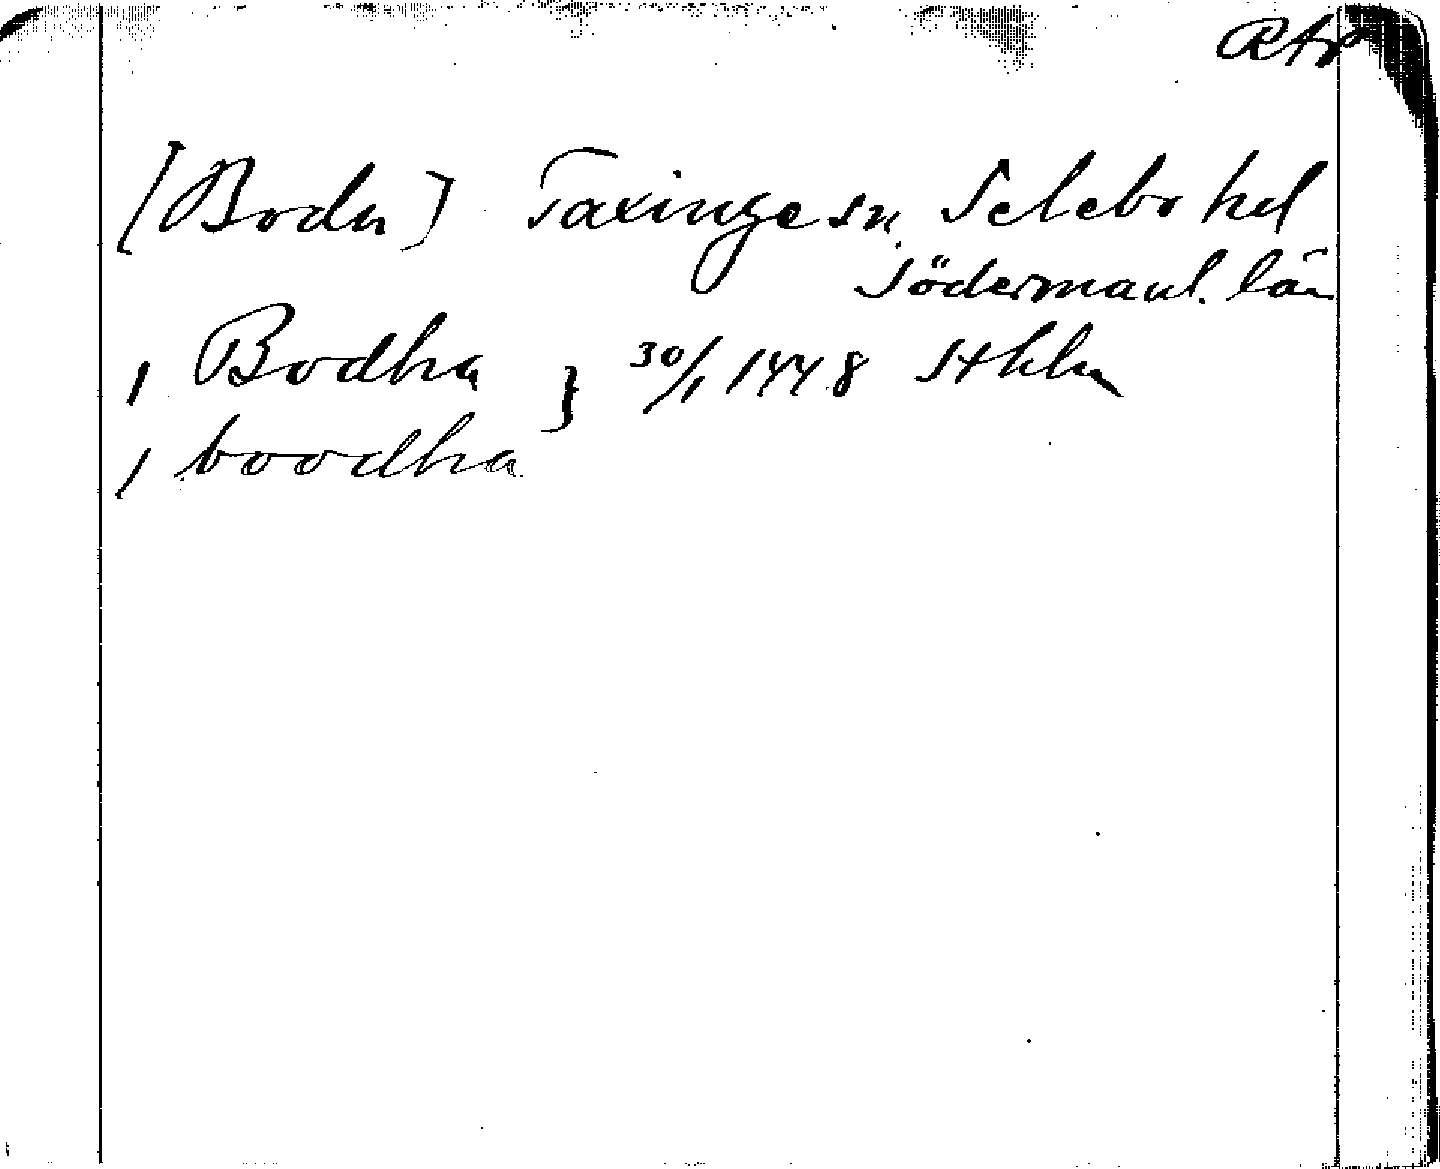 RAp
[Boda] Taxinge sn, Selebo hd
Södermanl. län
, Bodha } 30/1 1448 Sthlm
, boodha